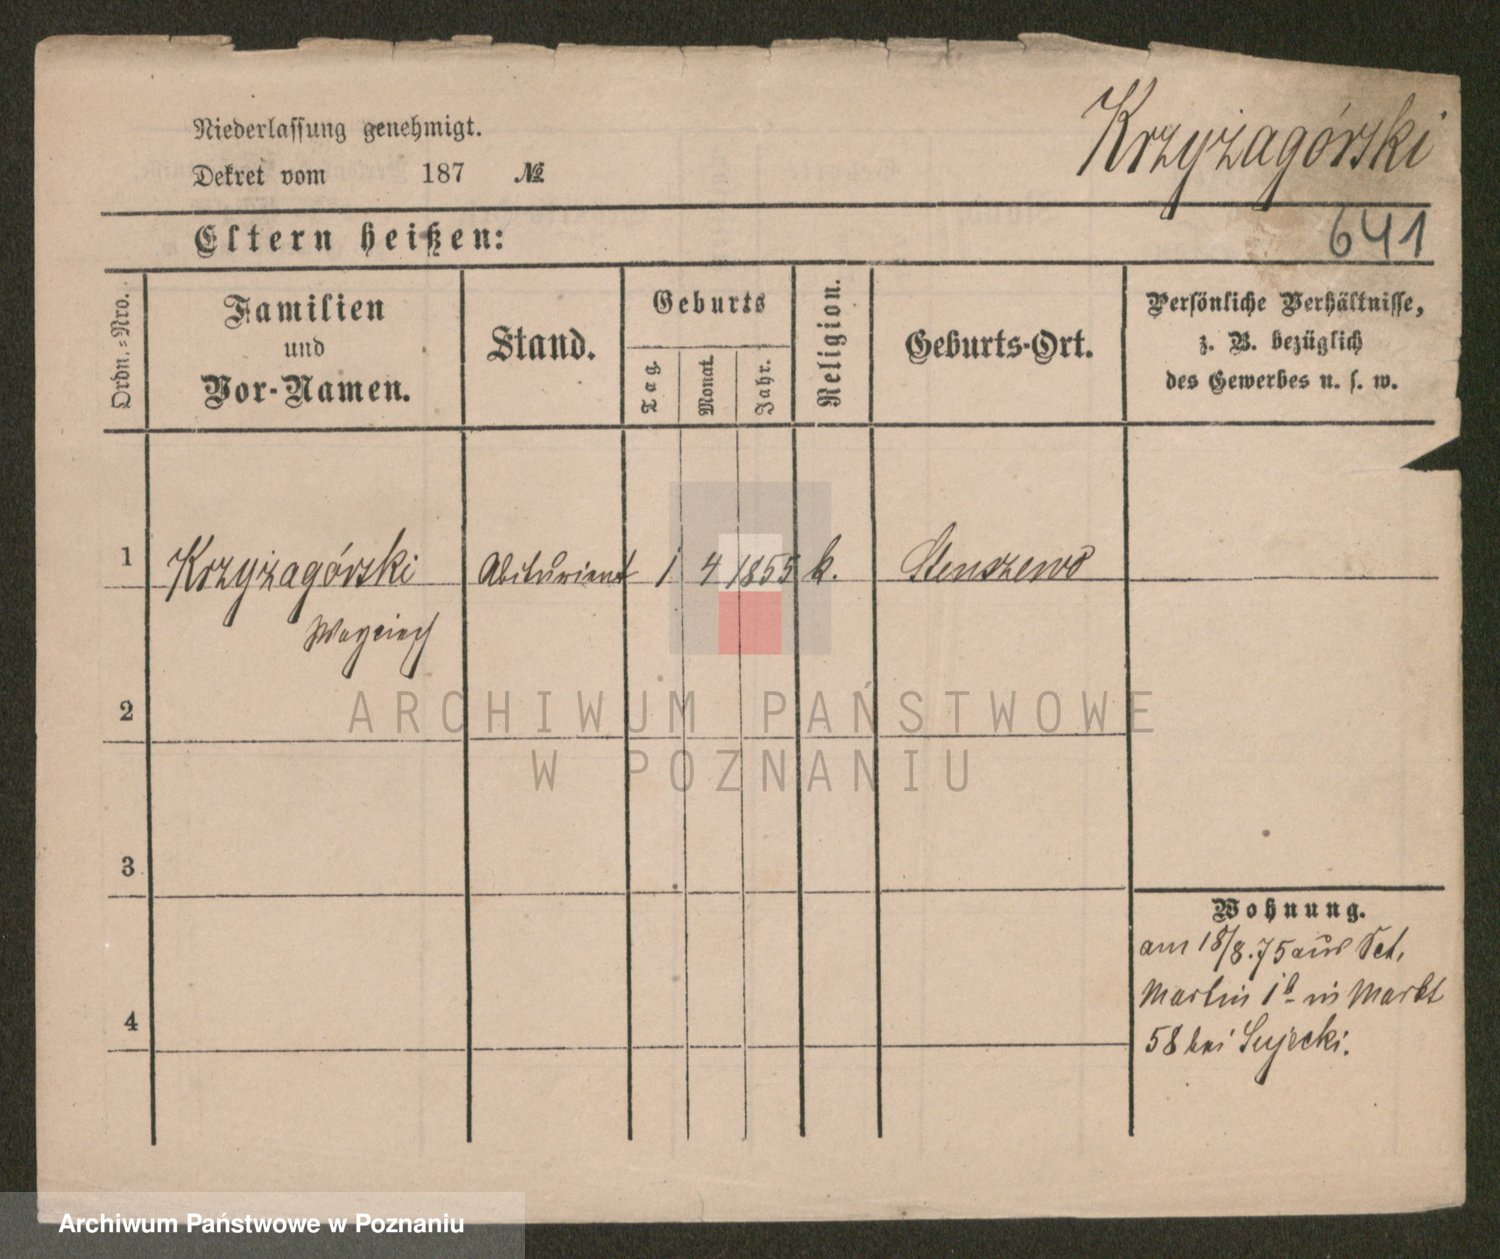 Niederlassung genehmigt.
Dekret vom 187 №
Krzyżagórski
641
Eltern heißen:
Ordn.-Nro.
Familien
und
Vor-Namen.
Stand.
Geburts
Tag.
Monat.
Jahr.
Religion.
Geburts-Ort.
Persönliche Verhältnisse,
z. B. bezüglich
des Gewerbes u. s. w.
1 Krzyżagórski Abiturient 1 4 1855 k. Stenszewo
Woyciech
2
3
4
Wohnung.
am 18/8.75 aus Sct.
Martin 1b in Markt
58 bei
ARCHIWUM PAŃSTWOWE
W POZNANIU
Archiwum Państwowe w Poznaniu